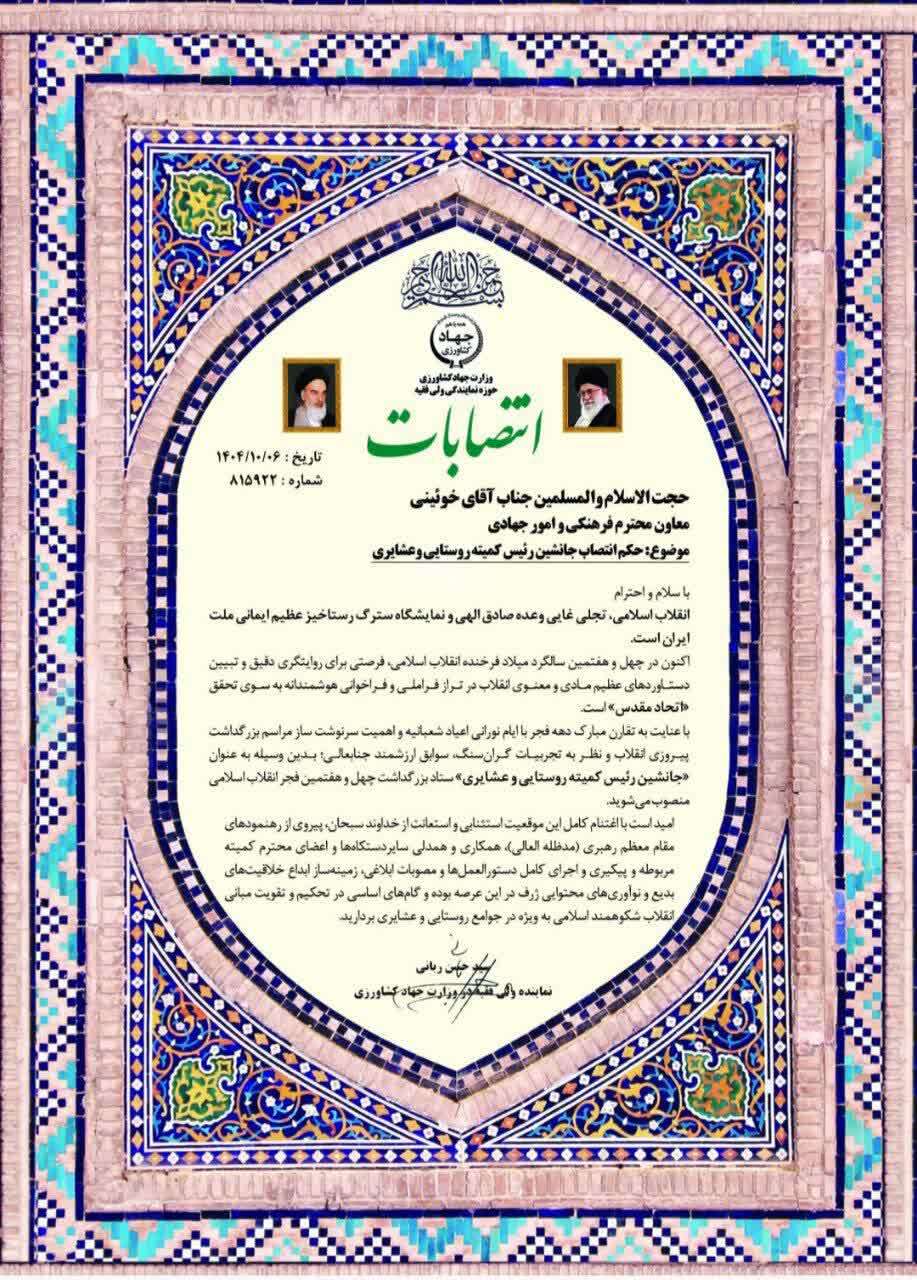 بسم الله الرحمن الرحیم
همه با هم
جهاد
کشاورزی
وزارت جهاد کشاورزی
حوزه نمایندگی ولی فقیه
انتصابات
تاریخ : ۱۴۰۴/۱۰/۰۶
شماره : ۸۱۵۹۲۲
حجت الاسلام والمسلمین جناب آقای خوئینی
معاون محترم فرهنگی و امور جهادی
موضوع: حکم انتصاب جانشین رئیس کمیته روستایی و عشایری
با سلام و احترام
انقلاب اسلامی، تجلی غایی وعده صادق الهی و نمایشگاه سترگ رستاخیز عظیم ایمانی ملت
ایران است.
اکنون در چهل و هفتمین سالگرد میلاد فرخنده انقلاب اسلامی، فرصتی برای روایتگری دقیق و تبیین
دستاوردهای عظیم مادی و معنوی انقلاب در تراز فراملی و فراخوانی هوشمندانه به سوی تحقق
«اتحاد مقدس» است.
با عنایت به تقارن مبارک دهه فجر با ایام نورانی اعیاد شعبانیه و اهمیت سرنوشت ساز مراسم بزرگداشت
پیروزی انقلاب و نظر به تجربیات گران‌سنگ، سوابق ارزشمند جنابعالی؛ بدین وسیله به عنوان
«جانشین رئیس کمیته روستایی و عشایری» ستاد بزرگداشت چهل و هفتمین فجر انقلاب اسلامی
منصوب می‌شوید.
امید است با اغتنام کامل این موقعیت استثنایی و استعانت از خداوند سبحان، پیروی از رهنمودهای
مقام معظم رهبری (مدظله العالی)، همکاری و همدلی سایردستگاه‌ها و اعضای محترم کمیته
مربوطه و پیگیری و اجرای کامل دستورالعمل‌ها و مصوبات ابلاغی، زمینه‌ساز ابداع خلاقیت‌های
بدیع و نوآوری‌های محتوایی ژرف در این عرصه بوده و گام‌های اساسی در تحکیم و تقویت مبانی
انقلاب شکوهمند اسلامی به ویژه در جوامع روستایی و عشایری بردارید.
سید حسن ربانی
نماینده ولی فقیه در وزارت جهاد کشاورزی